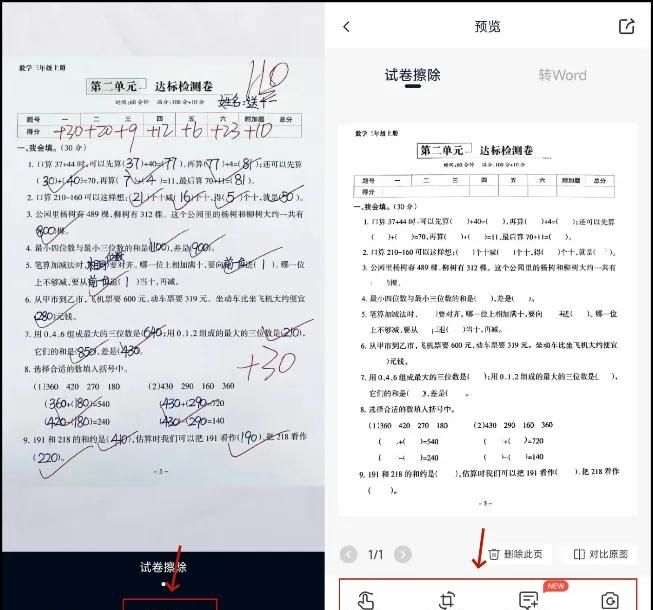 数学三年级上册
110
第二单元 达标检测卷
时间:60分钟 满分:100分+10分
姓名:
题号 一 二 三 四 五 六 附加题 总分
得分 +30 +20 +9 +12 +6 +23 +10
一、我会填。(30分)
1. 口算37+44时,可以先算(37)+40=(77),再算(77)+4=(81);还可以先算
(30)+(40)=70,再算(7)+(4)=11,最后算70+11=(81)。
2. 口算210-160可以这样想:(21)个十减(16)个十,得(5)个十,就是(50)。
3. 公园里杨树有489棵,柳树有312棵。这个公园里的杨树和柳树大约一共有
(800)棵。
4. 最小四位数与最小三位数的和是(1100),差是(900)。
5. 笔算加减法时,相同位数要对齐。哪一位上相加满十,要向前一位进(1)。哪一位
上不够减,要从前一位退(1)当十,再减。
6. 从甲市到乙市,飞机票要600元,动车票要319元。坐动车比坐飞机大约便宜
(280)元钱。
7. 用0,4,6组成最大的三位数是(640);用0,1,2组成的最大的三位数是(210),
它们的和是(850),差是(430)。
+30
8. 选择合适的数填入括号中。
(1)360 420 270 180 (2)430 290 160 360
(360)+(180)=540 (430)+(290)=720
(420)-(180)=240 (430)-(290)=140
9. 191和218的和约是(410),估算时我们可以把191看作(190),把218看作
(220)。
-5-
试卷擦除
预览
试卷擦除 转Word
数学三年级上册
第二单元 达标检测卷
时间:60分钟 满分:100分+10分
题号 一 二 三 四 五 六 附加题 总分
得分
一、我会填。(30分)
1. 口算37+44时,可以先算( )+40=( ),再算( )+4=( );还可以先算
( )+( )=70,再算( )+( )=11,最后算70+11=( )。
2. 口算210-160可以这样想:( )个十减( )个十,得( )个十,就是( )。
3. 公园里杨树有489棵,柳树有312棵。这个公园里的杨树和柳树大约一共有
( )棵。
4. 最小四位数与最小三位数的和是( ),差是( )。
5. 笔算加减法时, )要对齐。哪一位上相加满十,要向 进( )。哪一位
上不够减,要从 退( )当十,再减。
6. 从甲市到乙市,飞机票要600元,动车票要319元。坐动车比坐飞机大约便宜
( )元钱。
7. 用0,4,6组成最大的三位数是( );用0,1,2组成的最大的三位数是( ),
它们的和是( ),差是( )。
8. 选择合适的数填入括号中。
(1)360 420 270 180 (2)430 290 160 360
( )+( )=540 ( )+( )=720
( )-( )=240 ( )-( )=140
9. 191和218的和约是( ),估算时我们可以把191看作( ),把218看作
( )。
-5-
1/1 删除此页 对比原图
NEW